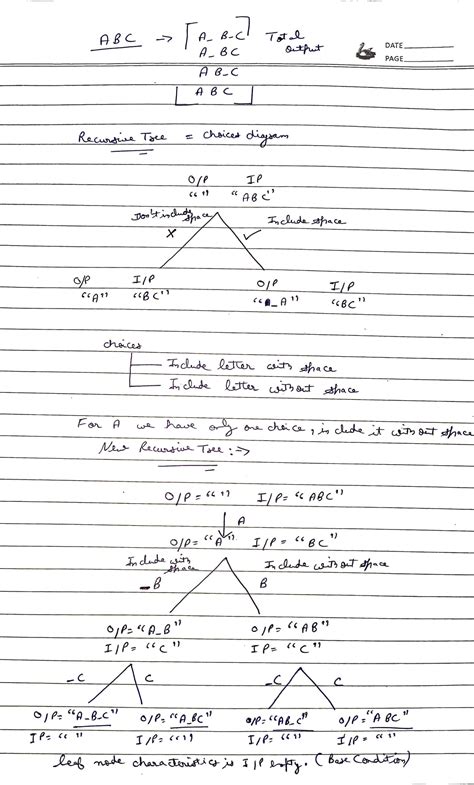 ABC → [A_B_C] Total
A_BC output
AB_C
[ABC]
DATE
PAGE
Recursive Tree = choices diagram
O/P IP
“ ” “ABC”
Don't include space Include space
× ✓
O/P I/P O/P I/P
“A” “BC” “_A” “BC”
choices
Include letter with space
Include letter without space
For A we have only one choice, include it without space
New Recursive Tree :→
O/P = “ ” I/P = “ABC”
A
O/P = “A” I/P = “BC”
Include with space Include without space
_B B
O/P = “A_B” O/P = “AB”
I/P = “C” IP = “C”
_C C _C C
O/P = “A_B_C” O/P = “A_BC” O/P = “AB_C” O/P = “ABC”
IP = “ ” I/P = “ ” I/P = “ ” I/P = “ ”
leaf node characteristics is I/P empty. (Base Condition)